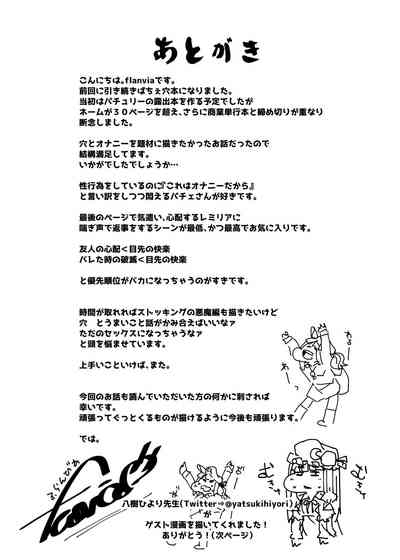 あとがき
こんにちは。flanviaです。
前回に引き続きぱちぇ穴本になりました。
当初はパチュリーの露出本を作る予定でしたが
ネームが３０ページを超え、さらに商業単行本と締め切りが重なり
断念しました。
穴とオナニーを題材に描きたかったお話だったので
結構満足してます。
いかがでしたでしょうか…
性行為をしているのに『これはオナニーだから』
と言い訳をしつつ悶えるパチェさんが好きです。
最後のページで気遣い、心配するレミリアに
喘ぎ声で返事をするシーンが最低、かつ最高でお気に入りです。
友人の心配＜目先の快楽
バレた時の破滅＜目先の快楽
と優先順位がバカになっちゃうのがすきです。
時間が取れればストッキングの悪魔編も描きたいけど
穴　とうまいこと話がかみ合えばいいなァ
ただのセックスになっちゃうなァ
と頭を悩ませています。
上手いこといけば、また。
今回のお話も読んでいただいた方の何かに刺されば
幸いです。
頑張ってぐっとくるものが描けるように今後も頑張ります。
では。
ふらんびあ
むきゅー
むきゅー
八樹ひより先生(Twitter⇒@yatsukihiyori)
が
ゲスト漫画を描いてくれました！
ありがとう！(次ページ)